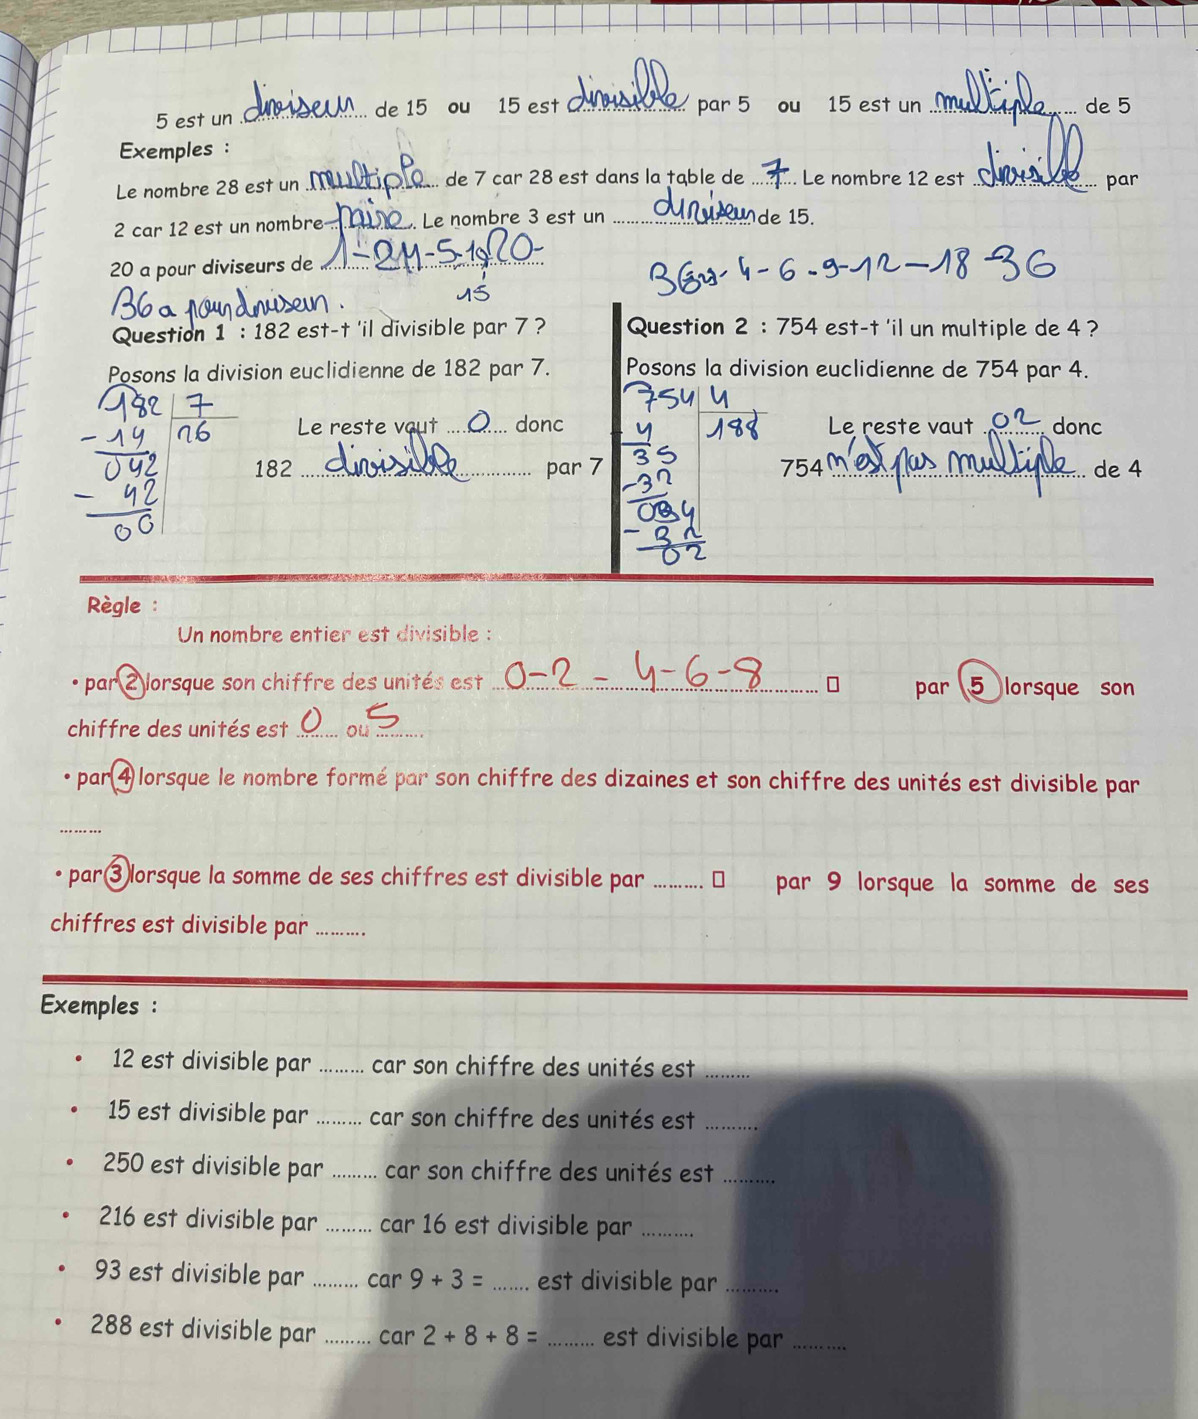 5 est un diviseur de 15 ou 15 est divisible par 5 ou 15 est un multiple de 5
Exemples :
Le nombre 28 est un multiple de 7 car 28 est dans la table de 7. Le nombre 12 est divisible par
2 car 12 est un nombre paire. Le nombre 3 est un diviseur de 15.
20 a pour diviseurs de 1-2-4-5-10-20-
15
36 a pour diviseur. 4-6-9-12-18-36
Question 1 : 182 est-t 'il divisible par 7 ?
Posons la division euclidienne de 182 par 7.
182 7
- 14 26
042
- 42
00
Le reste vaut 0 donc
182 divisible par 7
Question 2 : 754 est-t 'il un multiple de 4 ?
Posons la division euclidienne de 754 par 4.
754 4
- 4 188
35
-32
034
- 32
02
Le reste vaut 02 donc
754 n'est pas multiple de 4
Règle :
Un nombre entier est divisible :
• par 2 lorsque son chiffre des unités est 0-2-4-6-8 par 5 lorsque son
chiffre des unités est 0 ou 5
• par 4 lorsque le nombre formé par son chiffre des dizaines et son chiffre des unités est divisible par
.........
• par 3 lorsque la somme de ses chiffres est divisible par ......... par 9 lorsque la somme de ses
chiffres est divisible par .........
Exemples :
• 12 est divisible par ......... car son chiffre des unités est .........
• 15 est divisible par ......... car son chiffre des unités est .........
• 250 est divisible par ......... car son chiffre des unités est .........
• 216 est divisible par ......... car 16 est divisible par .........
• 93 est divisible par ......... car 9 + 3 = ....... est divisible par .........
• 288 est divisible par ......... car 2 + 8 + 8 = ......... est divisible par .........